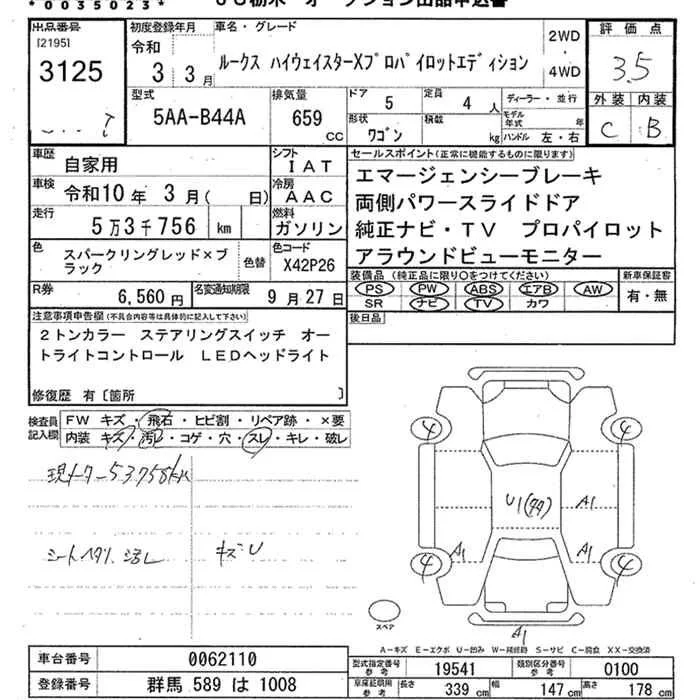 *0035023*
出品番号
[2195]
3125
初度登録年月
令和
3 3月
車名・グレード
ルークス ハイウェイスターXプロパイロットエディション
2WD
・
4WD
評価点
3.5
外装 内装
C B
型式
5AA-B44A
排気量
659 CC
ドア 5
定員 4人
形状 ワゴン
積載 kg
ディーラー・並行
モデル年式 年
ハンドル 左・右
車歴 自家用
シフト IAT
車検 令和10年 3月( 日)
冷房 AAC
走行 5万3千756 km
燃料 ガソリン
色 スパークリングレッド×ブラック
色替
色コード X42P26
R券 6,560円
名変通知期限 9月27日
セールスポイント(正常に機能するものに限ります)
エマージェンシーブレーキ
両側パワースライドドア
純正ナビ・TV プロパイロット
アラウンドビューモニター
装備品(純正品に限り○をつけてください)
PS PW ABS エアB AW
SR ナビ TV カワ
新車保証書
有・無
後日品
注意事項申告欄(不具合内容等は具体的に記入して下さい)
2トンカラー ステアリングスイッチ オー
トライトコントロール LEDヘッドライト
修復歴 有〔箇所 〕
検査員記入欄
FW キズ・飛石・ヒビ割・リペア跡・×要
内装 キズ・汚レ・コゲ・穴・スレ・キレ・破レ
現メーター53758km
シートヘタリ 汚レ
キズU
4 4
U1(44) A1
A1 A1
4 4
スペア
A1
A-キズ E-エクボ U-凹み W-補修跡 S-サビ C-腐食 XX-交換済
車台番号 0062110
登録番号 群馬 589 は 1008
型式指定番号 参考 19541
類別区分番号 参考 0100
車庫証明用 参考
長さ 339 cm 幅 147 cm 高さ 178 cm